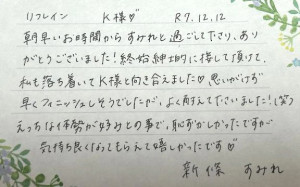 リフレイン K様♡ R7.12.12
朝早いお時間から すみれと過ごして下さり、あり
がとうございました！終始紳士的に接して頂けて、
私も落ち着いてK様と向き合えました♡思いがけず
早くフィニッシュしそうでしたが、よく耐えて下さいました！(笑)
えっちな体勢が好みとの事で、恥ずかしかったですが
気持ち良くなってもらえて嬉しかったです♡
新條 すみれ